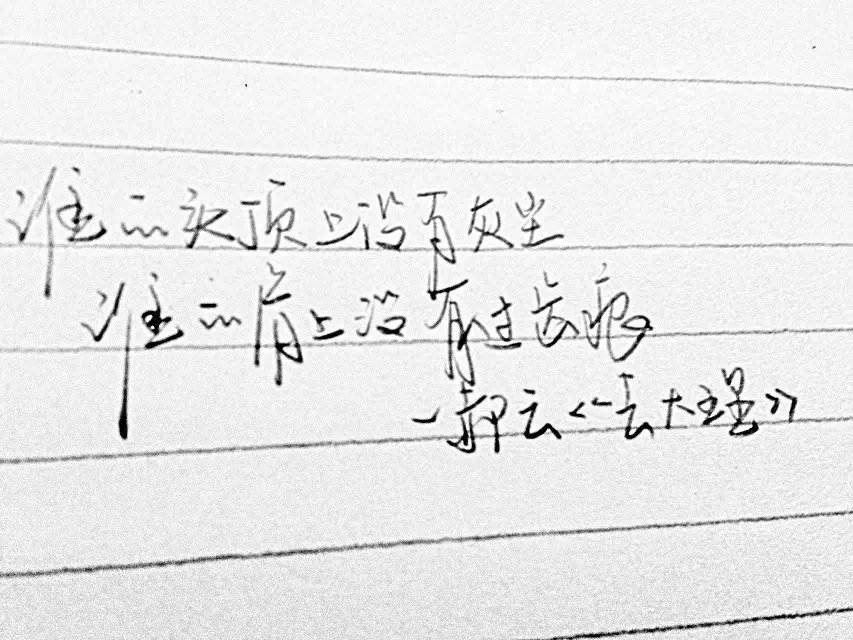 谁的头顶上没有灰尘
谁的肩上没有过齿痕
—郝云《去大理》